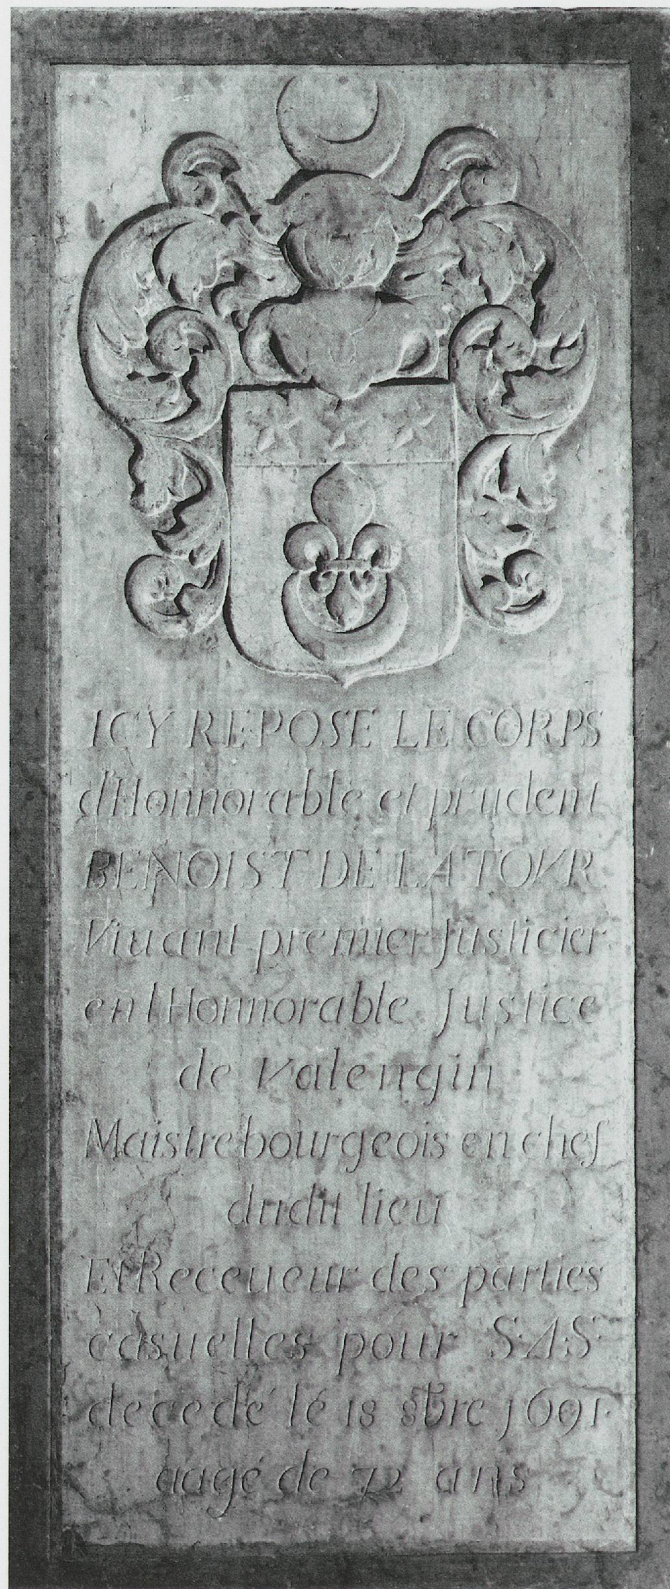 ICY REPOSE LE CORPS
d'Honnorable et prudent
BENOIST DE LA TOVR
Viuant premier Justicier
en l'Honnorable Justice
de Valengin
Maistrebourgeois en chef
dudit lieu
Et Receueur des parties
casuelles pour S·A·S·
decedé lé 18 8bre 1691·
aagé de 72 ans